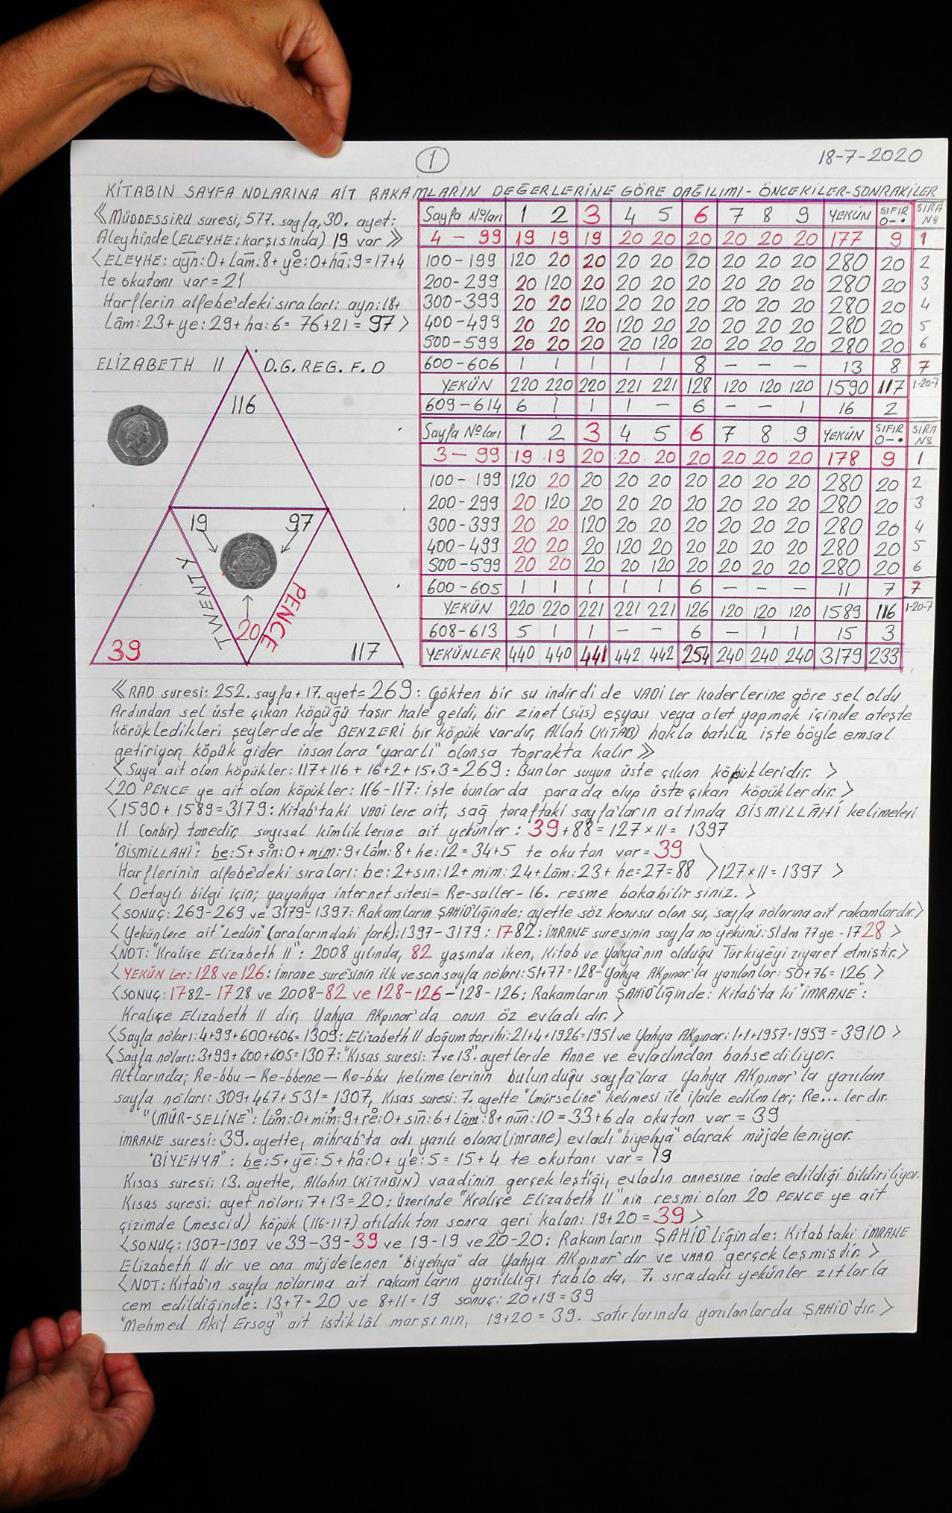 1
18-7-2020
KİTABIN SAYFA NOLARINA AİT RAKAMLARIN DEĞERLERİNE GÖRE DAĞILIMI - ÖNCEKİLER-SONRAKİLER
《MÜDDESSİRU suresi; 577. sayfa, 30. ayet:
Aleyhinde (ELEYHE: karşısında) 19 var》
<ELEYHE: ayn:0+lâm:8+ye:0+hâ:9=17+4
te okutanı var=21
Harflerin alfebe'deki sıraları: ayn:18+
Lâm:23+ye:29+ha:6=76+21=97>
Sayfa Nºları 1 2 3 4 5 6 7 8 9 YEKÜN SIFIR 0-• SIRA Nº
4 - 99 19 19 19 20 20 20 20 20 20 177 9 1
100-199 120 20 20 20 20 20 20 20 20 280 20 2
200-299 20 120 20 20 20 20 20 20 20 280 20 3
300-399 20 20 120 20 20 20 20 20 20 280 20 4
400-499 20 20 20 120 20 20 20 20 20 280 20 5
500-599 20 20 20 20 120 20 20 20 20 280 20 6
600-606 1 1 1 1 1 8 - - - 13 8 7
YEKÜN 220 220 220 221 221 128 120 120 120 1590 117 1-20-7
609-614 6 1 1 1 - 6 - - 1 16 2
Sayfa Nºları 1 2 3 4 5 6 7 8 9 YEKÜN SIFIR 0-• SIRA Nº
3 - 99 19 19 20 20 20 20 20 20 20 178 9 1
100-199 120 20 20 20 20 20 20 20 20 280 20 2
200-299 20 120 20 20 20 20 20 20 20 280 20 3
300-399 20 20 120 20 20 20 20 20 20 280 20 4
400-499 20 20 20 120 20 20 20 20 20 280 20 5
500-599 20 20 20 20 120 20 20 20 20 280 20 6
600-605 1 1 1 1 1 6 - - - 11 7 7
YEKÜN 220 220 221 221 221 126 120 120 120 1589 116 1-20-7
608-613 5 1 1 - - 6 - 1 1 15 3
YEKÜNLER 440 440 441 442 442 254 240 240 240 3179 233
ELİZABETH II D.G. REG. F. D
116
19 97
TWENTY
PENCE
20
39
117
《RAD suresi: 252. sayfa+17. ayet=269: Gökten bir su indirdi de VADİ ler kaderlerine göre sel oldu
Ardından sel üste çıkan köpüğü taşır hale geldi, bir zinet (süs) eşyası veya alet yapmak içinde ateşte
körükledikleri şeylerde de BENZERİ bir köpük vardır, Allah (KİTAB) hakla batılı işte böyle emsal
getiriyor, köpük gider insanlara "yararlı" olansa toprakta kalır》
<Suya ait olan köpükler: 117+116+16+2+15+3=269: Bunlar suyun üste çıkan köpükleridir.>
<20 PENCE ye ait olan köpükler: 116-117: İşte bunlarda parada olup üste çıkan köpüklerdir.>
<1590+1589=3179: Kitab'taki VADİ lere ait, sağ taraftaki sayfa'ların altında BİSMİLLÂHİ kelimeleri
11 (onbir) tanedir, sayısal kimliklerine ait yekünler: 39+88=127×11=1397
"BİSMİLLAHİ": be:5+sin:0+mim:9+lâm:8+he:12=34+5 te okutan var=39
Harflerinin alfebe'deki sıraları: be:2+sin:12+mim:24+lâm:23+he=27=88 >127×11=1397>
<Detaylı bilgi için; yayahya internet sitesi-Re-suller-16. resme bakabilirsiniz.>
<SONUÇ: 269-269 ve 3179-1397: Rakamların ŞAHİD'liğinde: ayette söz konusu olan su, sayfa nolarına ait rakamlardır>
<Yekünlere ait "Ledün" (aralarındaki fark): 1397-3179: 1782: İMRANE suresinin sayfa no yekünü: 51 den 77 ye-1728>
<NOT: "Kraliçe Elizabeth II": 2008 yılında, 82 yaşında iken, Kitab ve Yahya'nın olduğu Türkiyeyi ziyaret etmiştir.>
<YEKÜN ler: 128 ve 126: İmrane suresinin ilk ve son sayfa noları: 51+77=128-Yahya Akpınar'la yazılanlar: 50+76=126>
<SONUÇ: 1782-1728 ve 2008-82 ve 128-126-128-126; Rakamların ŞAHİD'liğinde: Kitab'ta ki "İMRANE":
Kraliçe Elizabeth II dir, Yahya Akpınar'da onun öz evladıdır.>
<Sayfa noları: 4+99+600+606=1309: Elizabeth II doğum tarihi: 21+4+1926=1951 ve Yahya Akpınar: 1+1+1957=1959=3910>
<Sayfa noları: 3+99+600+605=1307: "Kısas suresi: 7 ve 13. ayetlerde Anne ve evladından bahsediliyor.
Altlarında; Re-bbu-Re-bbene-Re-bbu kelimelerinin bulunduğu sayfa'lara Yahya Akpınar'la yazılan
sayfa noları: 309+467+531=1307, Kısas suresi: 7. ayette "Lmürseline" kelimesi ile ifade edilenler; Re... lerdir.
"(MÜR-SELİNE": lâm:0+mim:9+re:0+sin:6+lâm:8+nun:10=33+6 da okutan var=39
İMRANE suresi: 39. ayette, mihrab'ta adı yazılı olana (imrane) evladı "biyehya" olarak müjdeleniyor.
"BİYEHYA": be:5+ye:5+ha:0+ye:5=15+4 te okutanı var=19
Kısas suresi: 13. ayette, Allahın (KİTABIN) vaadinin gerçekleştiği, evladın annesine iade edildiği bildiriliyor.
Kısas suresi: ayet noları: 7+13=20: Üzerinde "Kraliçe Elizabeth II"nin resmi olan 20 PENCE ye ait
çizimde (mescid) köpük (116-117) atıldıktan sonra geri kalan: 19+20=39>
<SONUÇ: 1307-1307 ve 39-39-39 ve 19-19 ve 20-20: Rakamların ŞAHİD'liğinde: Kitab'taki İMRANE
Elizabeth II dir ve ona müjdelenen "biyehya" da Yahya Akpınar'dır ve VAAD gerçekleşmiştir.>
<NOT: Kitab'ın sayfa nolarına ait rakamların yazıldığı tabloda, 7. sıradaki yekünler zıtlarla
cem edildiğinde: 13+7=20 ve 8+11=19 sonuç: 20+19=39
"Mehmed Akif Ersoy" ait istiklâl marşının, 19+20=39. satırlarında yazılanlarda ŞAHİD'tir.>